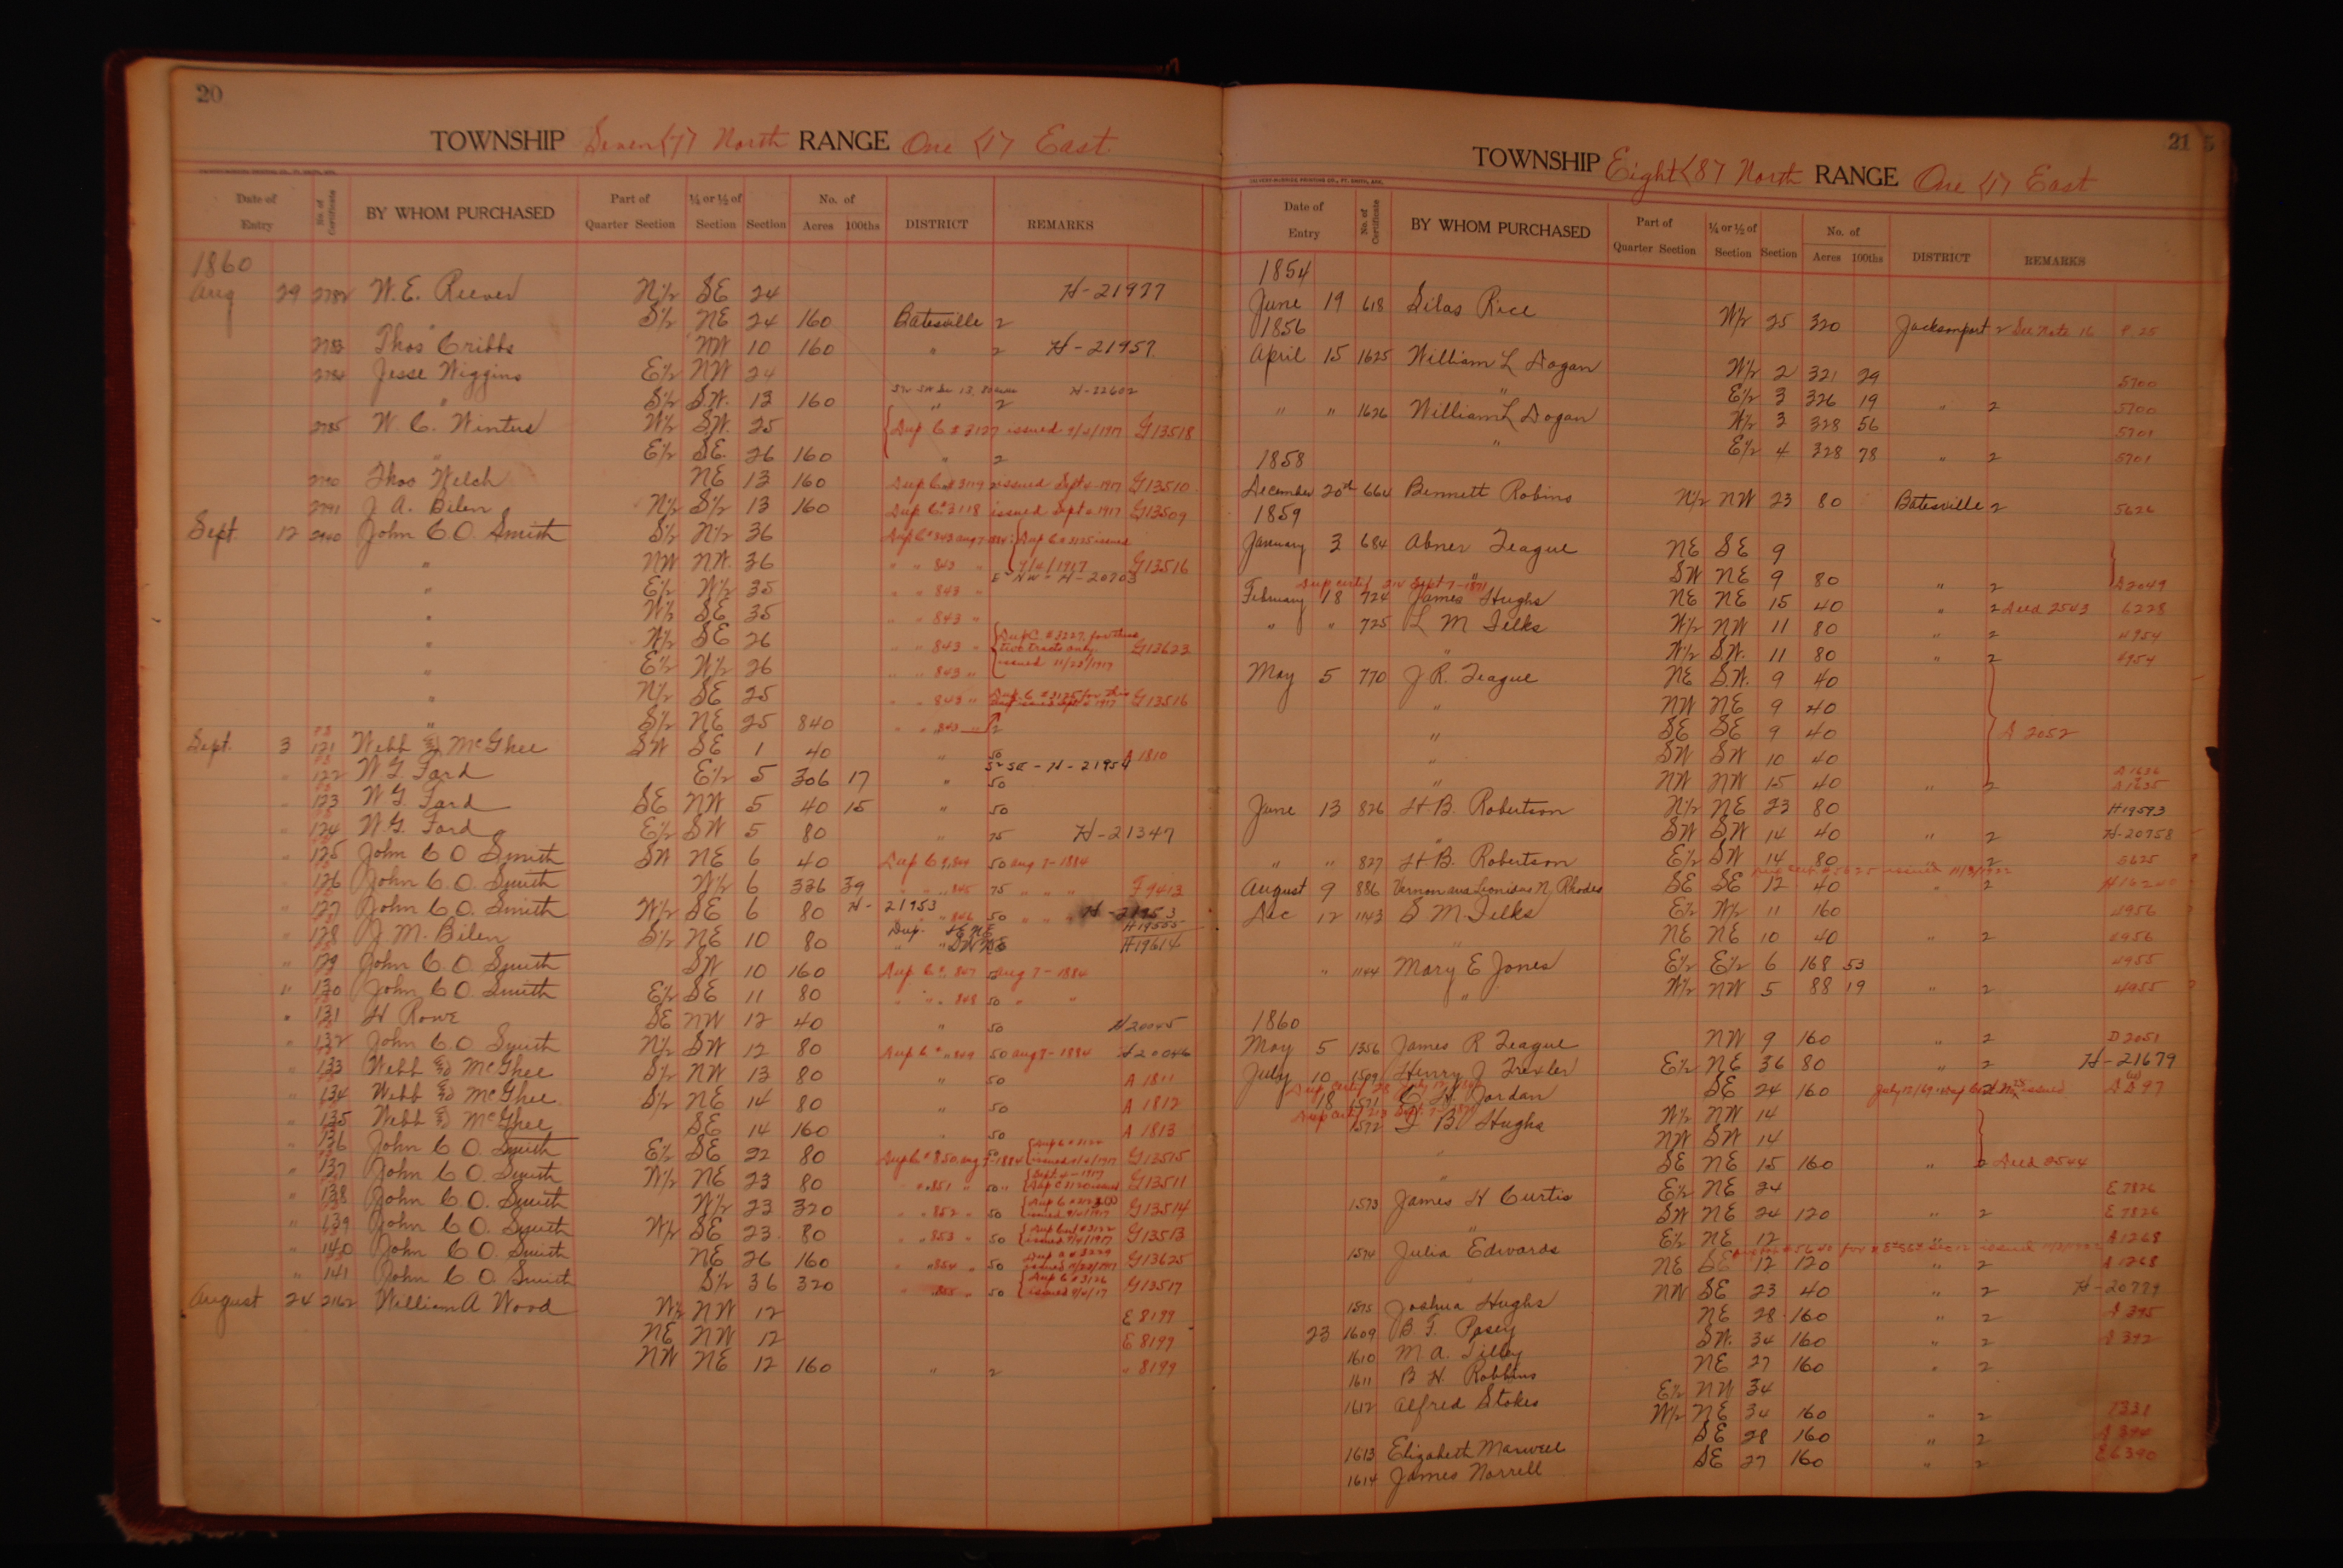 20
TOWNSHIP Seven <7> North RANGE One <1> East
Date of Entry No. of Certificate BY WHOM PURCHASED Part of Quarter Section ¼ or ½ of Section Section No. of Acres 100ths DISTRICT REMARKS
1860
Aug 29 2782 W. E. Reever N½ SE 24 H-21977
S½ NE 24 160 Batesville 2
2783 Thos Cribbs NW 10 160 " 2 H-21957
2784 Jesse Wiggins E½ NW 24
" S½ S.W. 13 160 " 2 H-22602
2785 W. C. Winters W½ S.W. 25 Dup C # 3127 issued 9/4/1917 G13518
" E½ SE. 26 160 " 2
2790 Thos Welch NE 13 160 Dup C # 3119 issued Sept 4-1917 G13510
2791 J. A. Bilen N½ S½ 13 160 Dup C# 3118 issued Sept 4 1917 G13509
Sept. 12 2940 John C. O. Smith S½ N½ 36 Dup C # 843 Aug 7-1884 Dup C # 3125 issued
" NW NW. 36 " " 843 " 9/4/1917 G13516
" E½ W½ 35 " " 843 " H-20703
" W½ SE 35 " " 843 "
" W½ SE 26 " " 843 " Dup C. # 3227 for these two tracts only issued 11/23/1917 G13623
" E½ W½ 26 " " 843 "
" N½ SE 25 " " 843 " Dup. C # 3125 for this G13516
" S½ NE 25 840 " " 843 " 2
Sept. 3 121 Webb & McGhee SW SE 1 40 " 50 A 1810
" 122 W. G. Ford E½ 5 306 17 " 50 S½ SE - H-21954
123 W. G. Ford SE NW 5 40 15 " 50
" 124 W. G. Ford E½ SW 5 80 " 75 H-21347
" 125 John C. O. Smith SW NE 6 40 Dup C # 844 50 Aug 7-1884
126 John C. O. Smith W½ 6 336 39 " " 845 75 " " " F9413
" 127 John C. O. Smith W½ SE 6 80 H-21953 " 846 50 " " H-21953
" 128 J. M. Bilen S½ NE 10 80 Dup. SE NE H19555
" SW NE H19614
" 129 John C. O. Smith SW 10 160 Dup C # 847 Aug 7-1884
" 130 John C. O. Smith E½ SE 11 80 " " 848 50 " "
" 131 H Rowe SE NW 12 40 " 50 H20045
" 132 John C. O. Smith N½ SW 12 80 Dup C # 849 50 Aug 7-1884 H20046
" 133 Webb & McGhee S½ NW 13 80 " 50 A 1811
" 134 Webb & McGhee S½ NE 14 80 " 50 A 1812
" 135 Webb & McGhee SE 14 160 " 50 A 1813
" 136 John C. O. Smith E½ SE 22 80 Dup C # 850 Aug 7-1884 G13515
" 137 John C. O. Smith W½ NE 23 80 " " 851 " 50 " Sept 4-1917 Dup C 3120 issued G13511
" 138 John C. O. Smith W½ 23 320 " " 852 " 50 issued 9/4/1917 G13514
" 139 John C. O. Smith W½ SE 23 80 " " 853 " 50 issued 9/4/1917 G13513
" 140 John C. O. Smith NE 26 160 " " 854 " 50 Dup C # 3229 issued 11/23/1917 G13625
" 141 John C. O. Smith S½ 36 320 " " 855 " 50 Dup C # 3126 issued 9/4/17 G13517
August 24 2162 William A Wood W½ NW 12 E 8199
NE NW 12 E 8199
NW NE 12 160 " 2 " 8199
21
TOWNSHIP Eight <8> North RANGE One <1> East
Date of Entry No. of Certificate BY WHOM PURCHASED Part of Quarter Section ¼ or ½ of Section Section No. of Acres 100ths DISTRICT REMARKS
1854
June 19 618 Silas Rice W½ 25 320 Jacksonport 2 See Note 16 P. 25
1856
April 15 1625 William L Dogan W½ 2 321 29 5700
" E½ 3 326 19 " 2 5700
" " 1626 William L Dogan W½ 3 328 56 5701
" E½ 4 328 78 " 2 5701
1858
December 20th 664 Bennett Robins N½ NW 23 80 Batesville 2 5626
1859
January 3 684 Abner Teague NE SE 9
" SW NE 9 80 " 2 D2049
Dup certif 212 Sept 7-1871
February 18 724 James Hughs NE NE 15 40 " 2 Deed 2543 6228
" " 725 L M Filks W½ NW 11 80 " 2 4954
" W½ S.W. 11 80 " 2 4954
May 5 770 J. R. Teague NE S.W. 9 40
" NW NE 9 40
" SE SE 9 40 D 2052
" SW SW 10 40
" NW NW 15 40 " 2 A 1635
June 13 826 H B. Robertson N½ NE 23 80 H19593
" SW SW 14 40 " 2 H-20758
" " 827 H B. Robertson E½ SW 14 80 " 2 5625
August 9 886 Vernon and Leonidas N. Rhodes SE SE 12 40 " 2
Dec 12 1143 S M Filks E½ W½ 11 160 4956
" NE NE 10 40 " 2 4956
" 1144 Mary E Jones E½ E½ 6 168 53 4955
" W½ NW 5 88 19 " 2 4955
1860
May 5 1356 James R Teague NW 9 160 " 2 D2051
July 10 1509 Henry J Trexler E½ NE 36 80 " 2 H-21679
18 1571 E. H. Jordan SE 24 160
1572 J B Hughs W½ NW 14
NW SW 14
" SE NE 15 160 " 2 Deed 2544
1573 James H Curtis E½ NE 24 E 7826
" SW NE 24 120 " 2 E 7826
1574 Julia Edwards E½ NE 12 A1268
NE SE 12 120 " 2 A 1268
1575 Joshua Hughs NW SE 23 40 " 2 H-20779
23 1609 B. F. Posey NE 28 160 " 2 A 395
1610 M. A. Tilley SW. 34 160 " 2 A 392
1611 B H. Robbins NE 27 160 " 2
1612 Alfred Stokes E½ NW 34
W½ NE 34 160 " 2 7331
1613 Elizabeth Maxwell SE 28 160 " 2 A 394
1614 James Norrell SE 27 160 " 2 E6390